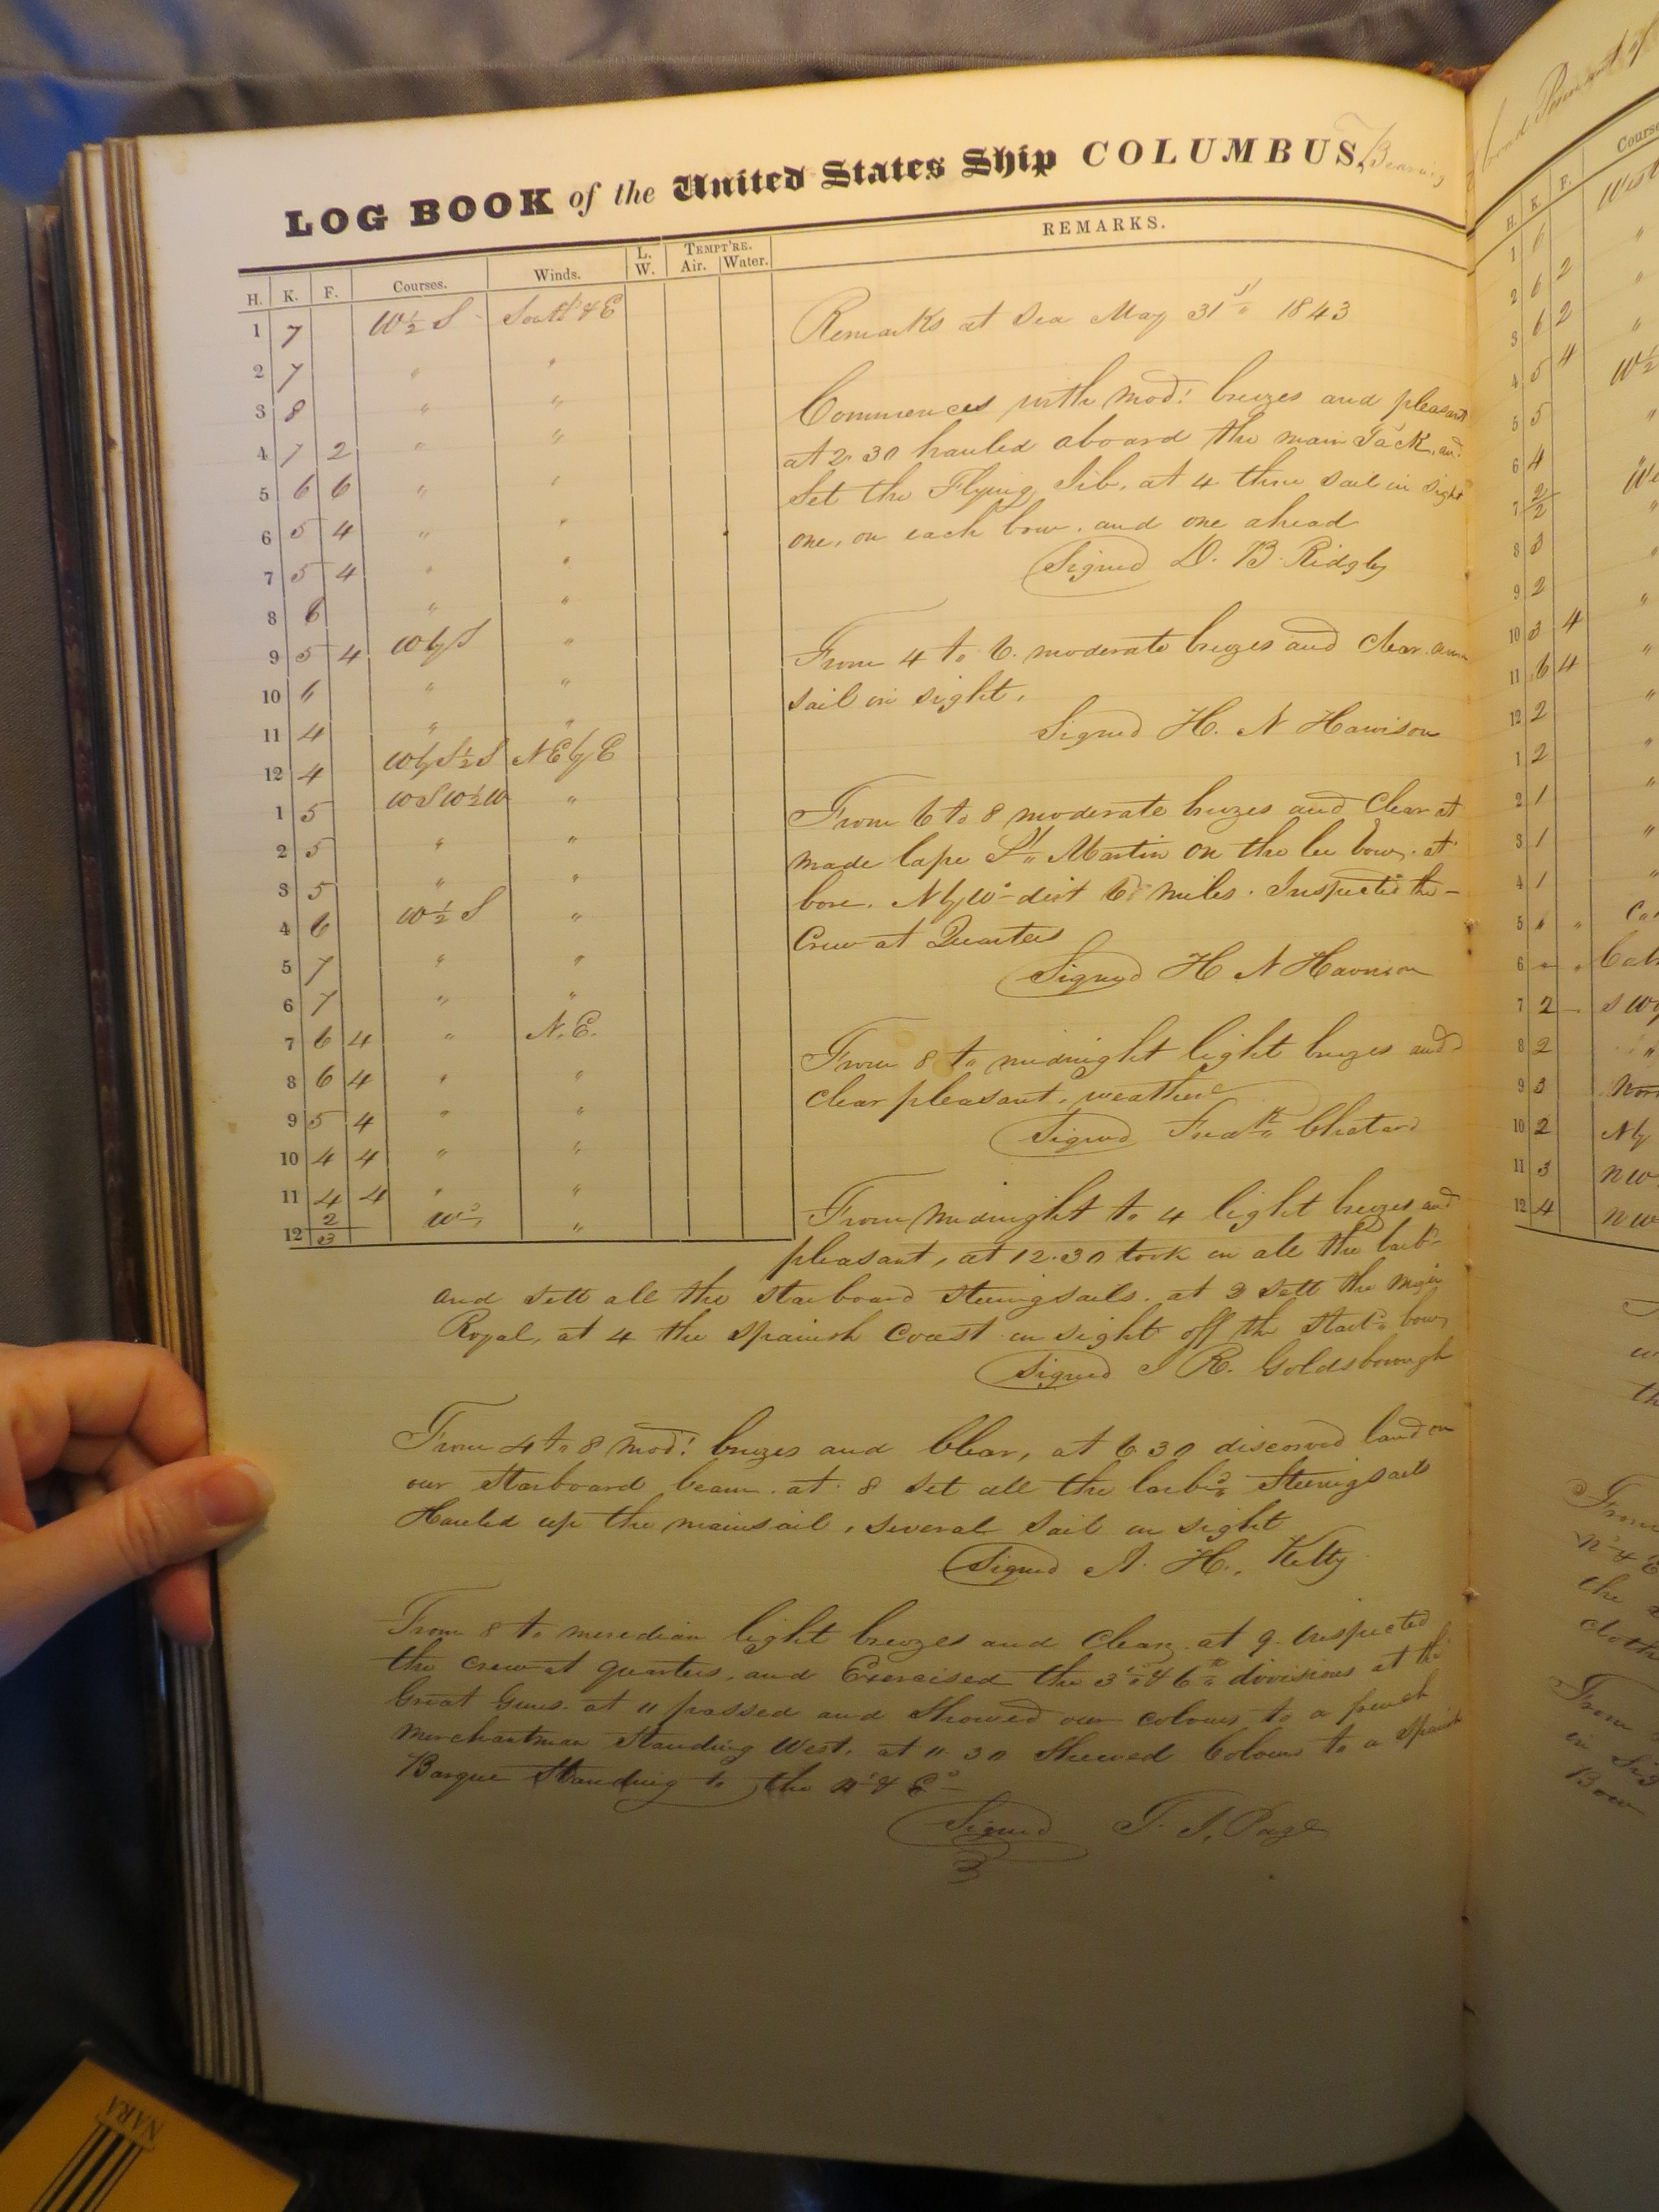 LOG BOOK of the United States Ship COLUMBUS, Bearing
H. K. F. Courses. Winds. L. W. TEMPT'RE. Air. Water. REMARKS.
1 7 W ½ S South & E
2 7 " "
3 8 " "
4 7 2 " "
5 6 6 " "
6 5 4 " "
7 5 4 " "
8 6 " "
9 5 4 W by S "
10 6 " "
11 4 " "
12 4 W by S ½ S N E by E
1 5 W S W ½ W "
2 5 " "
3 5 " "
4 6 W ½ S "
5 7 " "
6 7 " "
7 6 4 " N. E.
8 6 4 " "
9 5 4 " "
10 4 4 " "
11 4 4 " "
12 2 3 W "
Remarks at Sea May 31st 1843
Commences with mod: breezes and pleasant
at 2.30 hauled aboard the main Tack, and
Set the Flying Jib, at 4 three Sail in Sight
one, on each bow. and one ahead
Signed D. B. Ridgly
From 4 to 6. moderate breezes and Clear.
sail in sight,
Signed H. N Harrison
From 6 to 8 moderate breezes and Clear at
made Cape St Martin on the lee bow, at
bore. N by W dist 6 miles. Inspected the
Crew at Quarters
Signed H N Harrison
From 8 to midnight light breezes and
clear pleasant, weather
Signed Fredk Chatard
From midnight to 4 light breezes and
pleasant, at 12.30 took in all the larbd
and sett all the starboard steeringsails. at 3 Sett the Main
Royal, at 4 the Spanish Coast in sight off the Starbd bow,
Signed J R. Goldsborough
From 4 to 8 mod: breezes and Clear, at 6.30 discovered land on
our Starboard beam. at 8 Set all the larbd Steeringsails
Hauled up the mainsail, several Sail in sight
Signed A. H. Kelty
From 8 to meredian light breezes and Clear, at 9. inspected
the crew at quarters, and Exercised the 3rd & 6th divisions at the
Great Guns. at 11 passed and Showed our colours to a french
Merchantman Standing West. at 11.30 Shewed Colours to a Spanish
Barque Standing to the Nd & Ed
Signed T. J. Page
broad Pennant of
H. K. F. Course
1 6 West
2 6 2 "
3 6 2 "
4 5 4 W ½
5 5 "
6 4
7 2 2 "
8 3 "
9 2 "
10 3 4
11 6 4 "
12 2 "
1 2 "
2 1 "
3 1 "
4 1 "
5 " "
6 " " Calm
7 2
8 2 "
9 3
10 2 N by
11 3 N W
12 4 N W
From
the
From
Bow
NARA